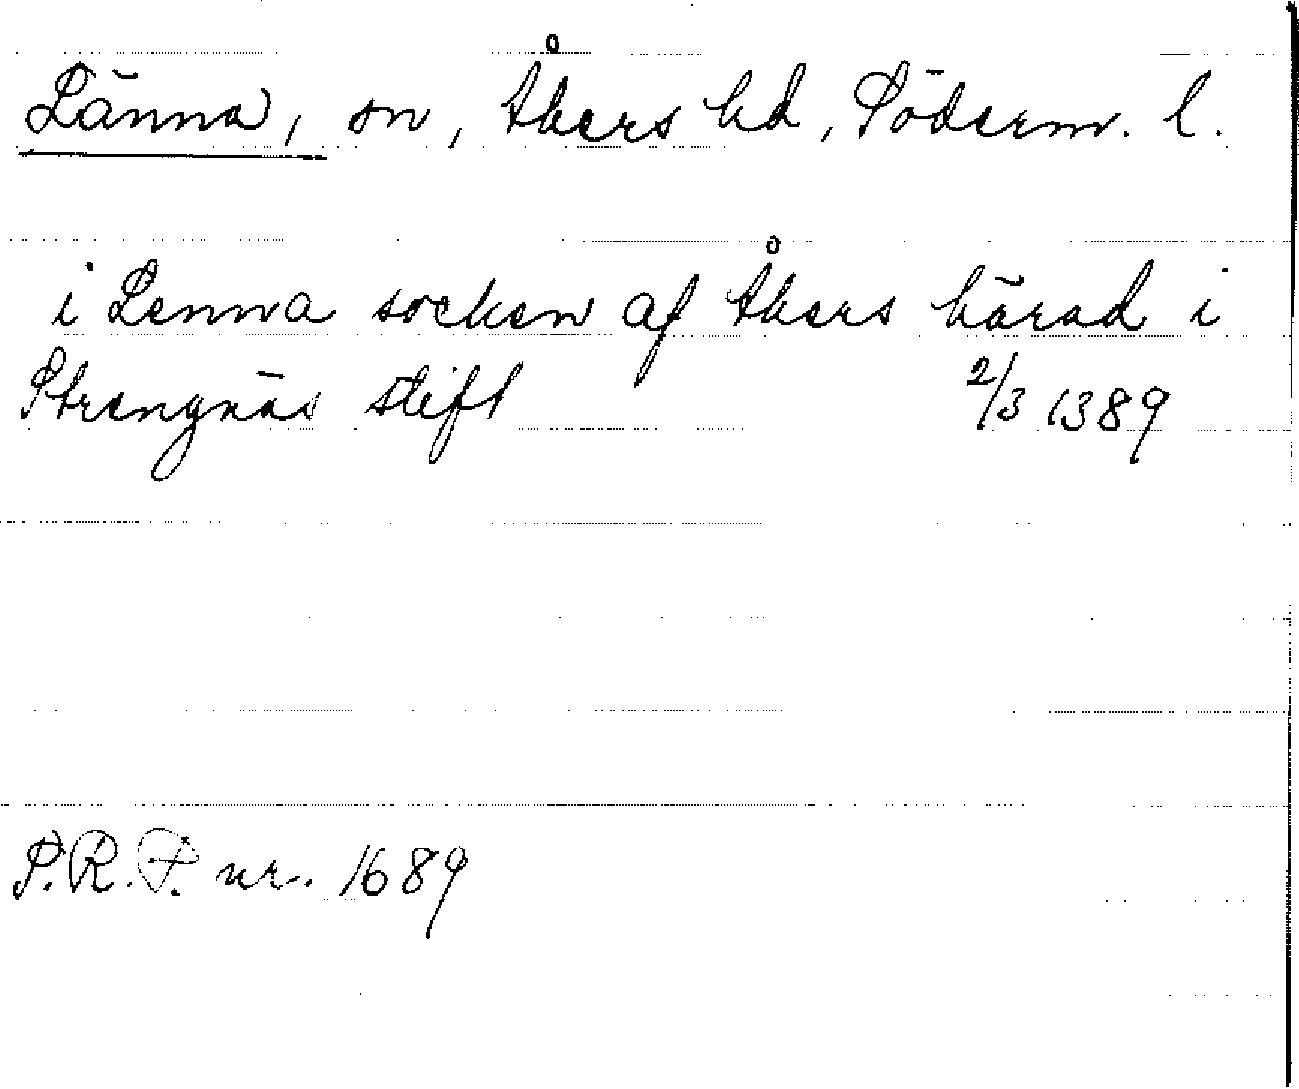 Länna, sn, Åkers hd, Söderm. l.
i Lenna socken af Åkers härad i
Strengnäs stift 2/3 1389
S.R.P. nr. 1689